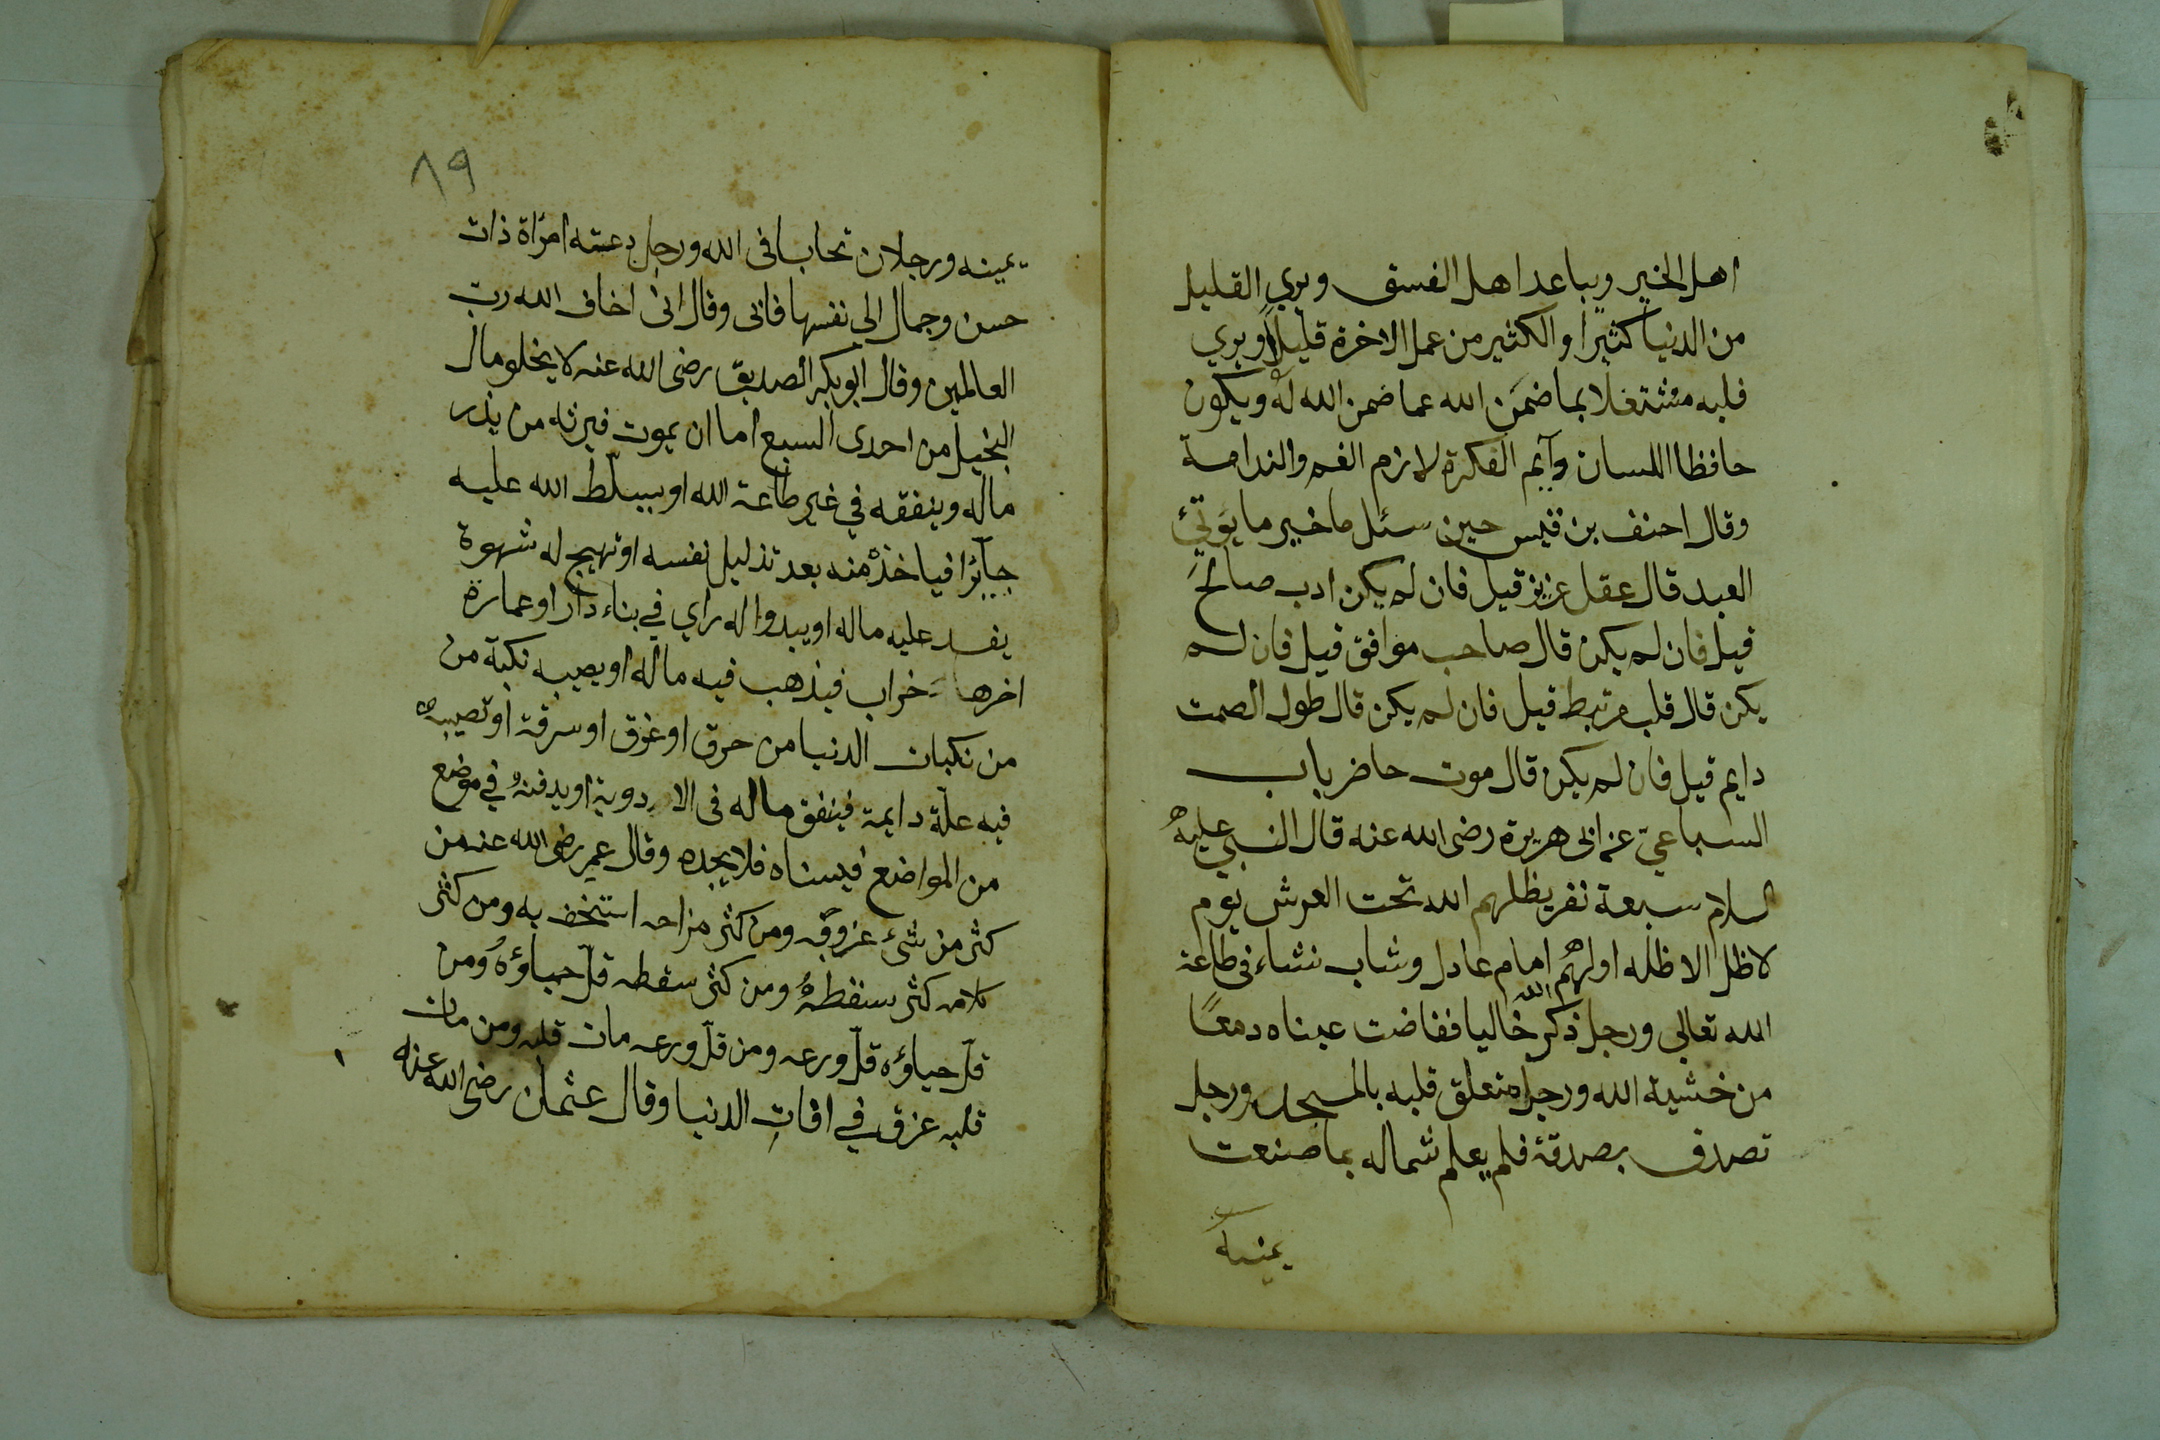 اهل الخير ويباعد اهل الفسق ويري القليل
من الدنيا كثيرا والكثير من عمل الاخرة قليلا ويري
قلبه مشتغلا بما ضمن الله عما ضمن الله له ويكون
حافظا اللسان وآيم الفكرة لازم الغم والندامة
وقال احنف بن قيس حين سئل ما خير ما يؤتي
العبد قال عقل عزيز قيل فان لم يكن ادب صالح
قيل فان لم يكن قال صاحب موافق قيل فان لم
يكن قال قلب مرتبط قيل فان لم يكن قال طول الصمت
دايم قيل فان لم يكن قال موت حاضر باب
السباعي عن ابى هريرة رضى الله عنه قال النبي عليه
السلام سبعة نفر يظلهم الله تحت العرش يوم
لا ظل الا ظله اولهم امام عادل وشاب نشاء فى طاعة
الله تعالى ورجل ذكر الله خاليا ففاضت عيناه دمعا
من خشية الله ورجل متعلق قلبه بالمسجد ورجل
تصدق بصدقة فلم يعلم شماله بما صنعت
يمينه
٨٩
يمينه ورجلان تحابا فى الله ورجل دعته امرأة ذات
حسن وجمال الي نفسها فابى وقال انى اخاف الله رب
العالمين وقال ابو بكر الصديق رضى الله عنه لا يخلو مال
البخيل من احدى السبع اما ان يموت فيرثه من يذر
ماله وينفقه في غير طاعة الله او يسلط الله عليه
جآئرا فياخذ منه بعد تذليل نفسه او تهيج له شهوة
يفسد عليه ماله او يبدوا له راي في بناء دار او عمارة
اخرها خراب فيذهب فيه ماله او يصيبه نكبة من
من نكبات الدنيا من حرق او غرق او سرقة او تصيبه
فيه علة دايمة فينفق ماله فى الادوية او يدفنه في موضع
من المواضع فيسناه فلا يجده وقال عمر رضى الله عنه من
كثر من شئ عزوقه ومن كثر مزاحه استخف به ومن كثر
كلامه كثر سقطه ومن كثر سقطه قل حياؤه ومن
قل حياؤه قل ورعه ومن قل ورعه مات قلبه ومن مات
قلبه غرق في افات الدنيا وقال عثمان رضى الله عنه